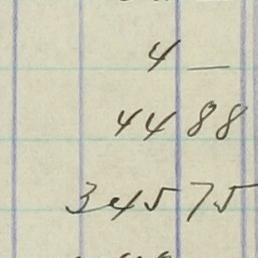 4 —
44 88
345 75